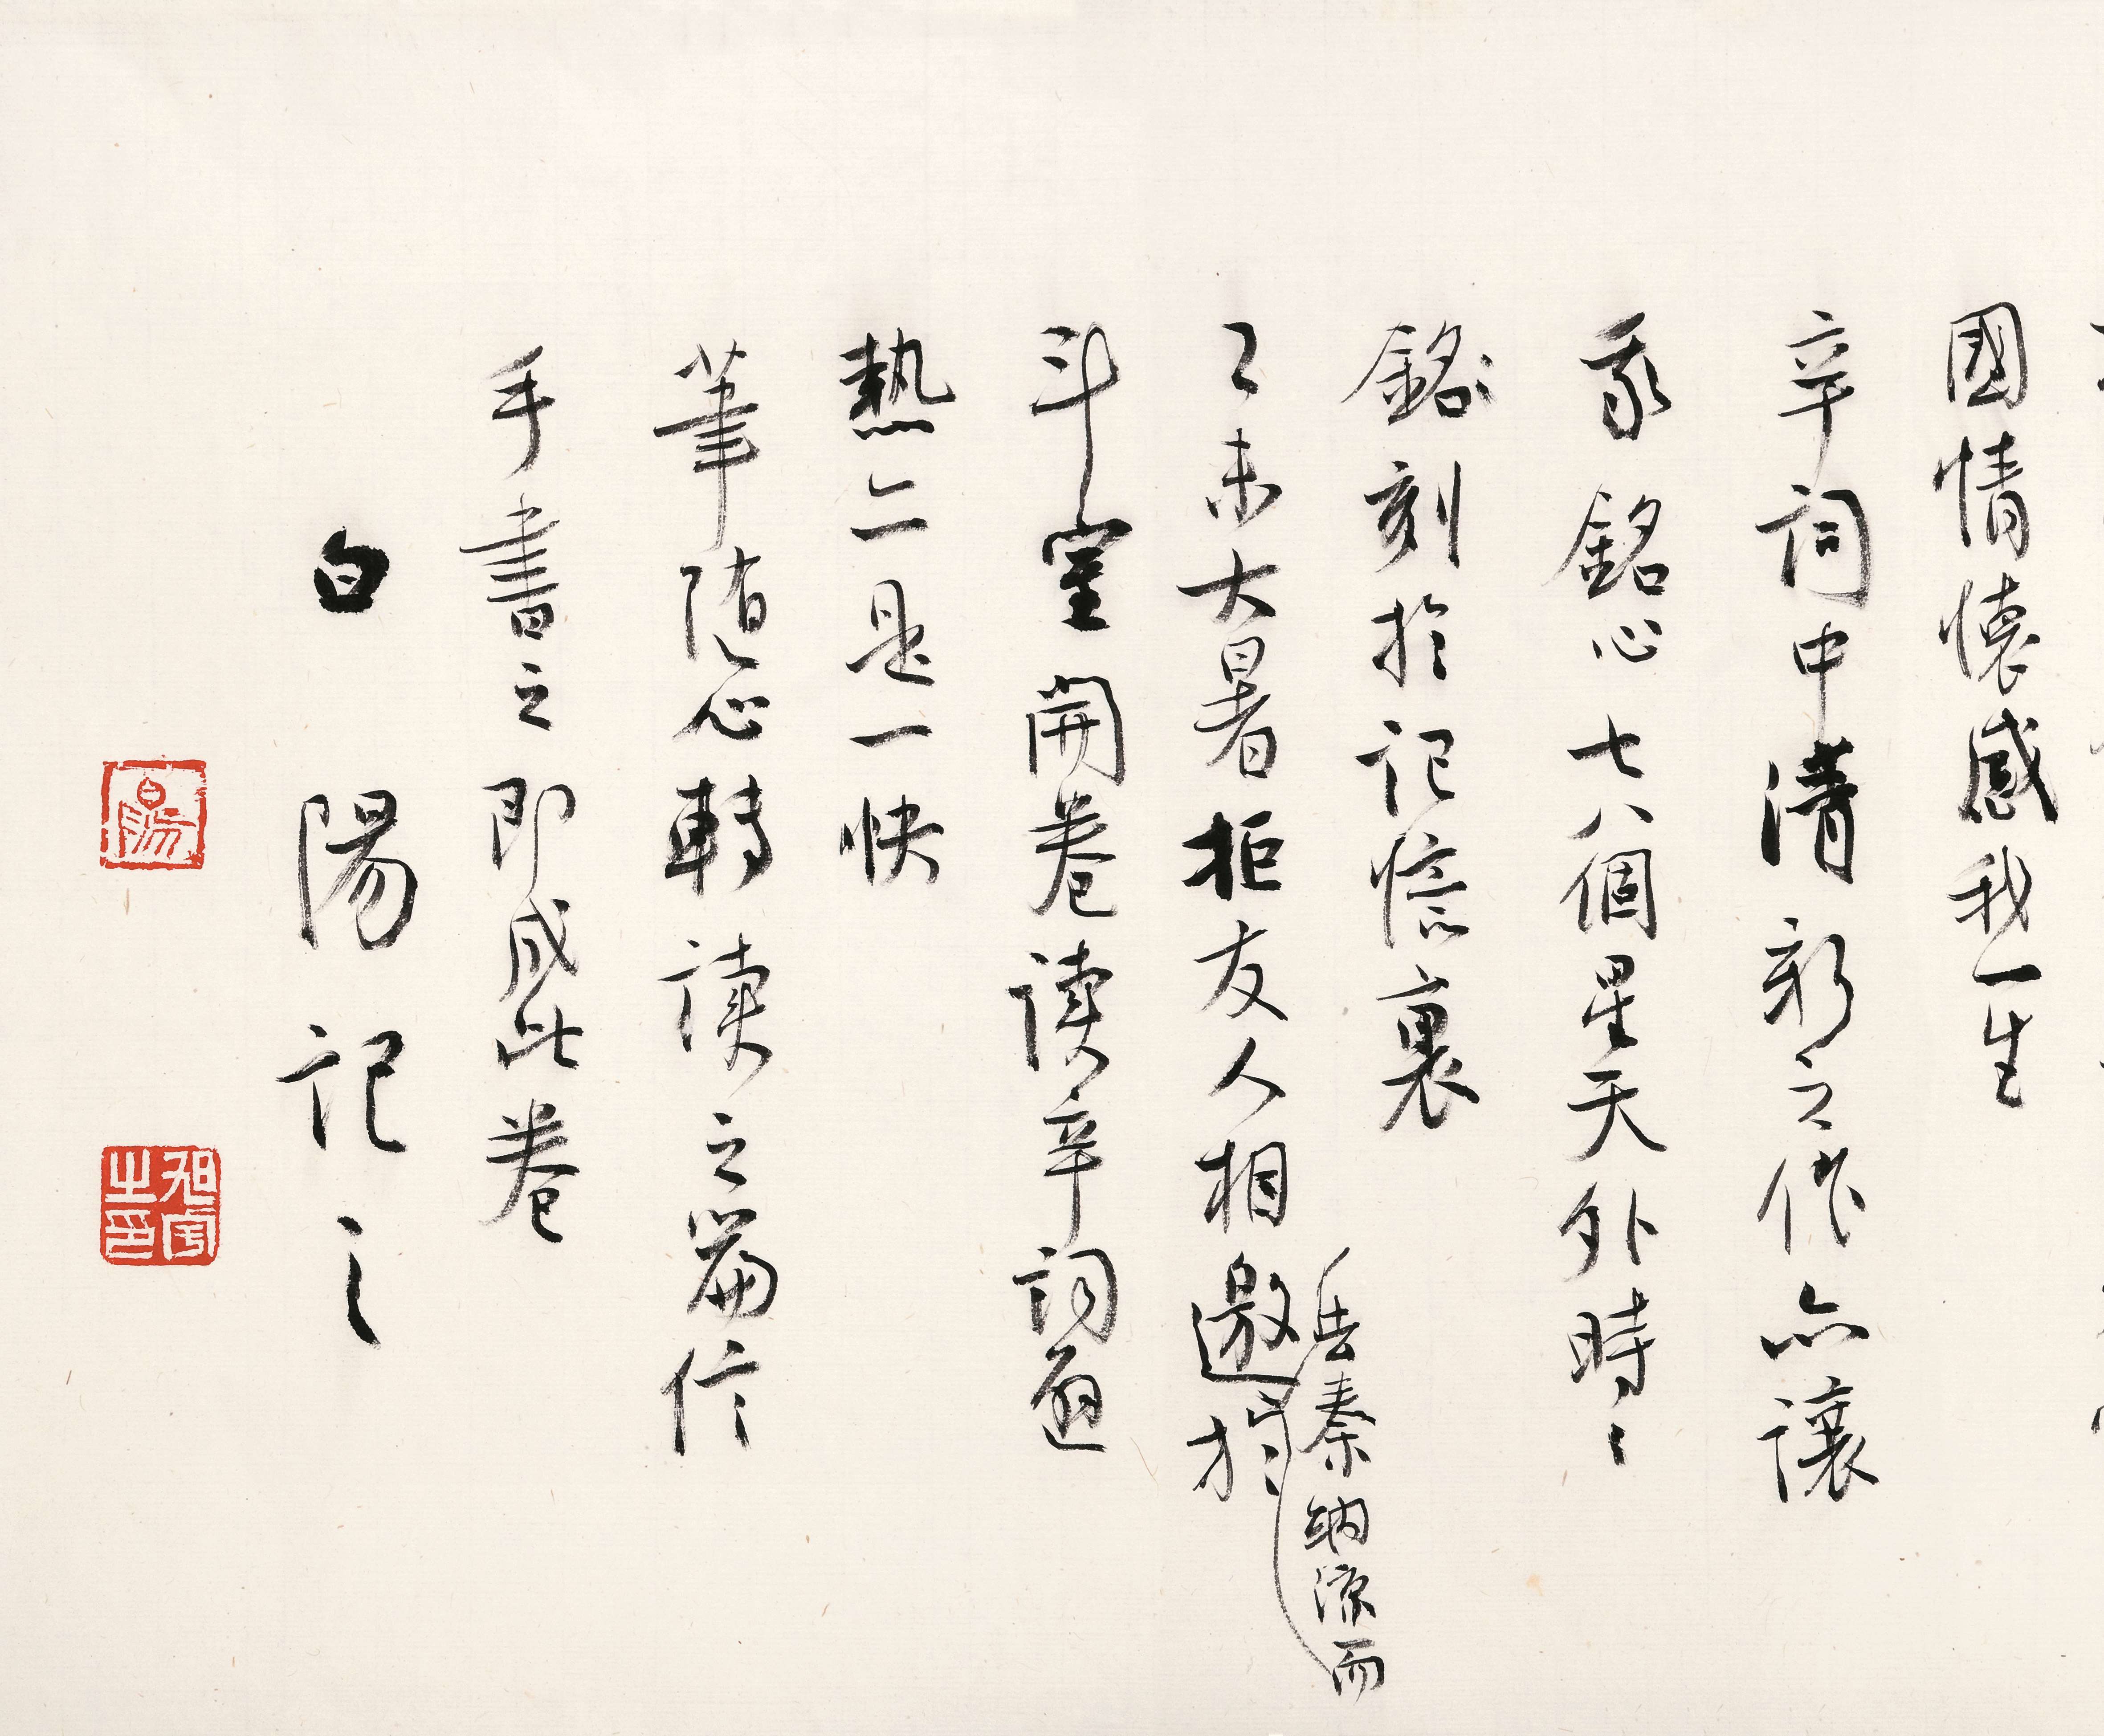 國情懷感我一生
辛詞中清新之作亦讓
我銘心七八個星天外時〻
銘刻於記憶裏
乙未大暑拒友人相邀於
去秦納涼而
斗室開卷讀辛詞避
熱亦是一快
筆随心轉讀之篇信
手書之即成此卷
白陽記之
白陽